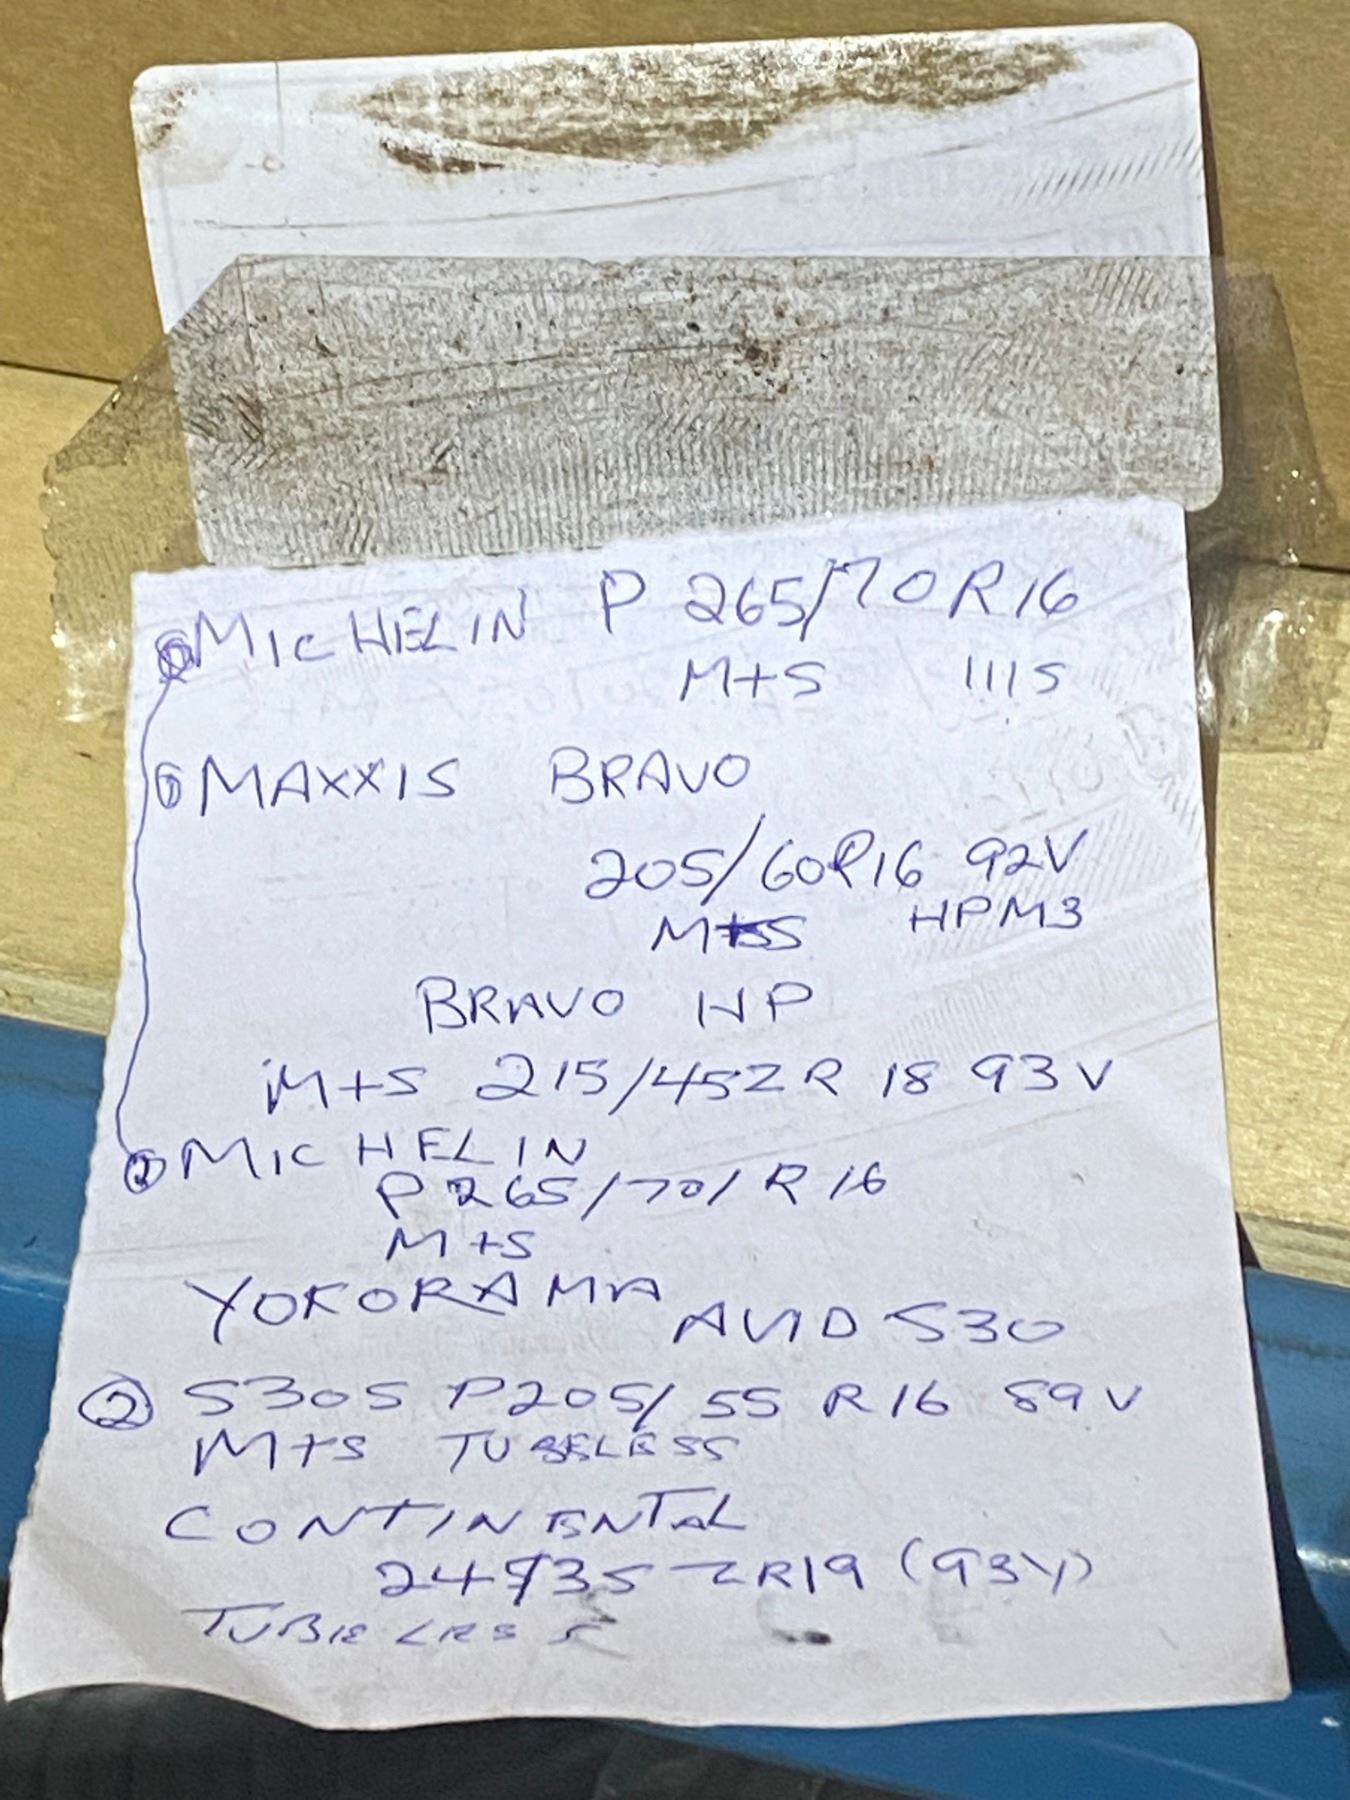 MICHELIN P 265/70R16
M+S 111S
① MAXXIS BRAVO
205/60R16 92V
M+S HPM3
BRAVO HP
M+S 215/45ZR 18 93V
② MICHELIN
P265/70/R16
M+S
YOKORAMA AVID S30
② S305 P205/55 R16 89V
M+S TUBELESS
CONTINENTAL
245/35 ZR19 (93Y)
TUBELESS